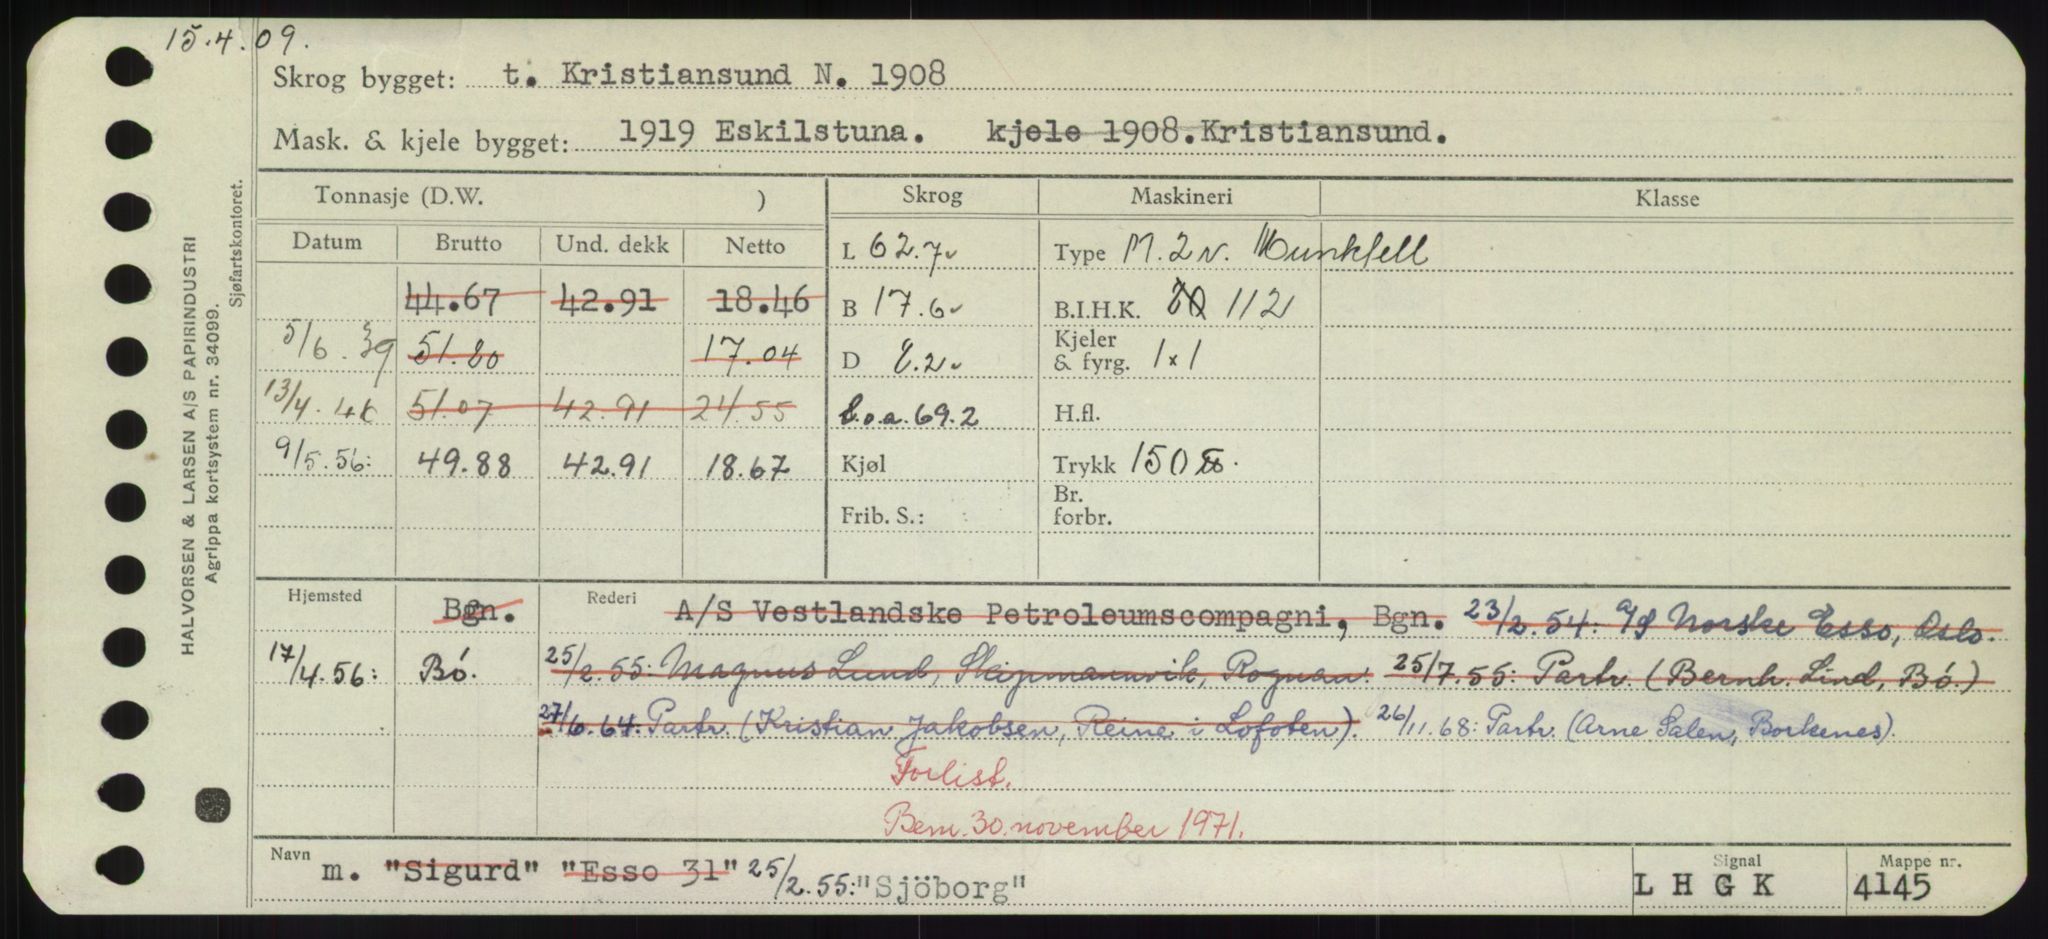 15.4.09.
Skrog bygget: t. Kristiansund N. 1908
Mask. & kjele bygget: 1919 Eskilstuna. kjele 1908. Kristiansund.
HALVORSEN & LARSEN A/S PAPIRINDUSTRI
Agrippa kortsystem nr. 34099.
Sjøfartskontoret.
Tonnasje (D.W. ) Skrog Maskineri Klasse
Datum Brutto Und. dekk Netto L 62.7 Type M. 2 v. Munktell
44.67 42.91 18.46 B 17.6 B.I.H.K. 112
5/6.39 51.80 17.04 D 8.2 Kjeler & fyrg. 1x1
13/4.46 51.07 42.91 24.55 l.o.a. 69.2 H.fl.
9/5.56: 49.88 42.91 18.67 Kjøl Trykk 150
Frib. S.: Br. forbr.
Hjemsted Bgn. Rederi A/S Vestlandske Petroleumscompagni, Bgn. 23/2.54: A/S Norske Esso, Oslo.
17/4.56: Bø. 25/2.55: Magnus Lund, Skipmannvik, Rognan. 25/7.55: Partr. (Bernh. Lind, Bø.)
27/6.64: Partr. (Kristian Jakobsen, Reine i Lofoten). 26/11.68: Partr. (Arne Salen, Borkenes).
Forlist.
Bem. 30. november 1971.
Navn m. "Sigurd" "Esso 31" 25/2.55: "Sjöborg" Signal LHGK Mappe nr. 4145